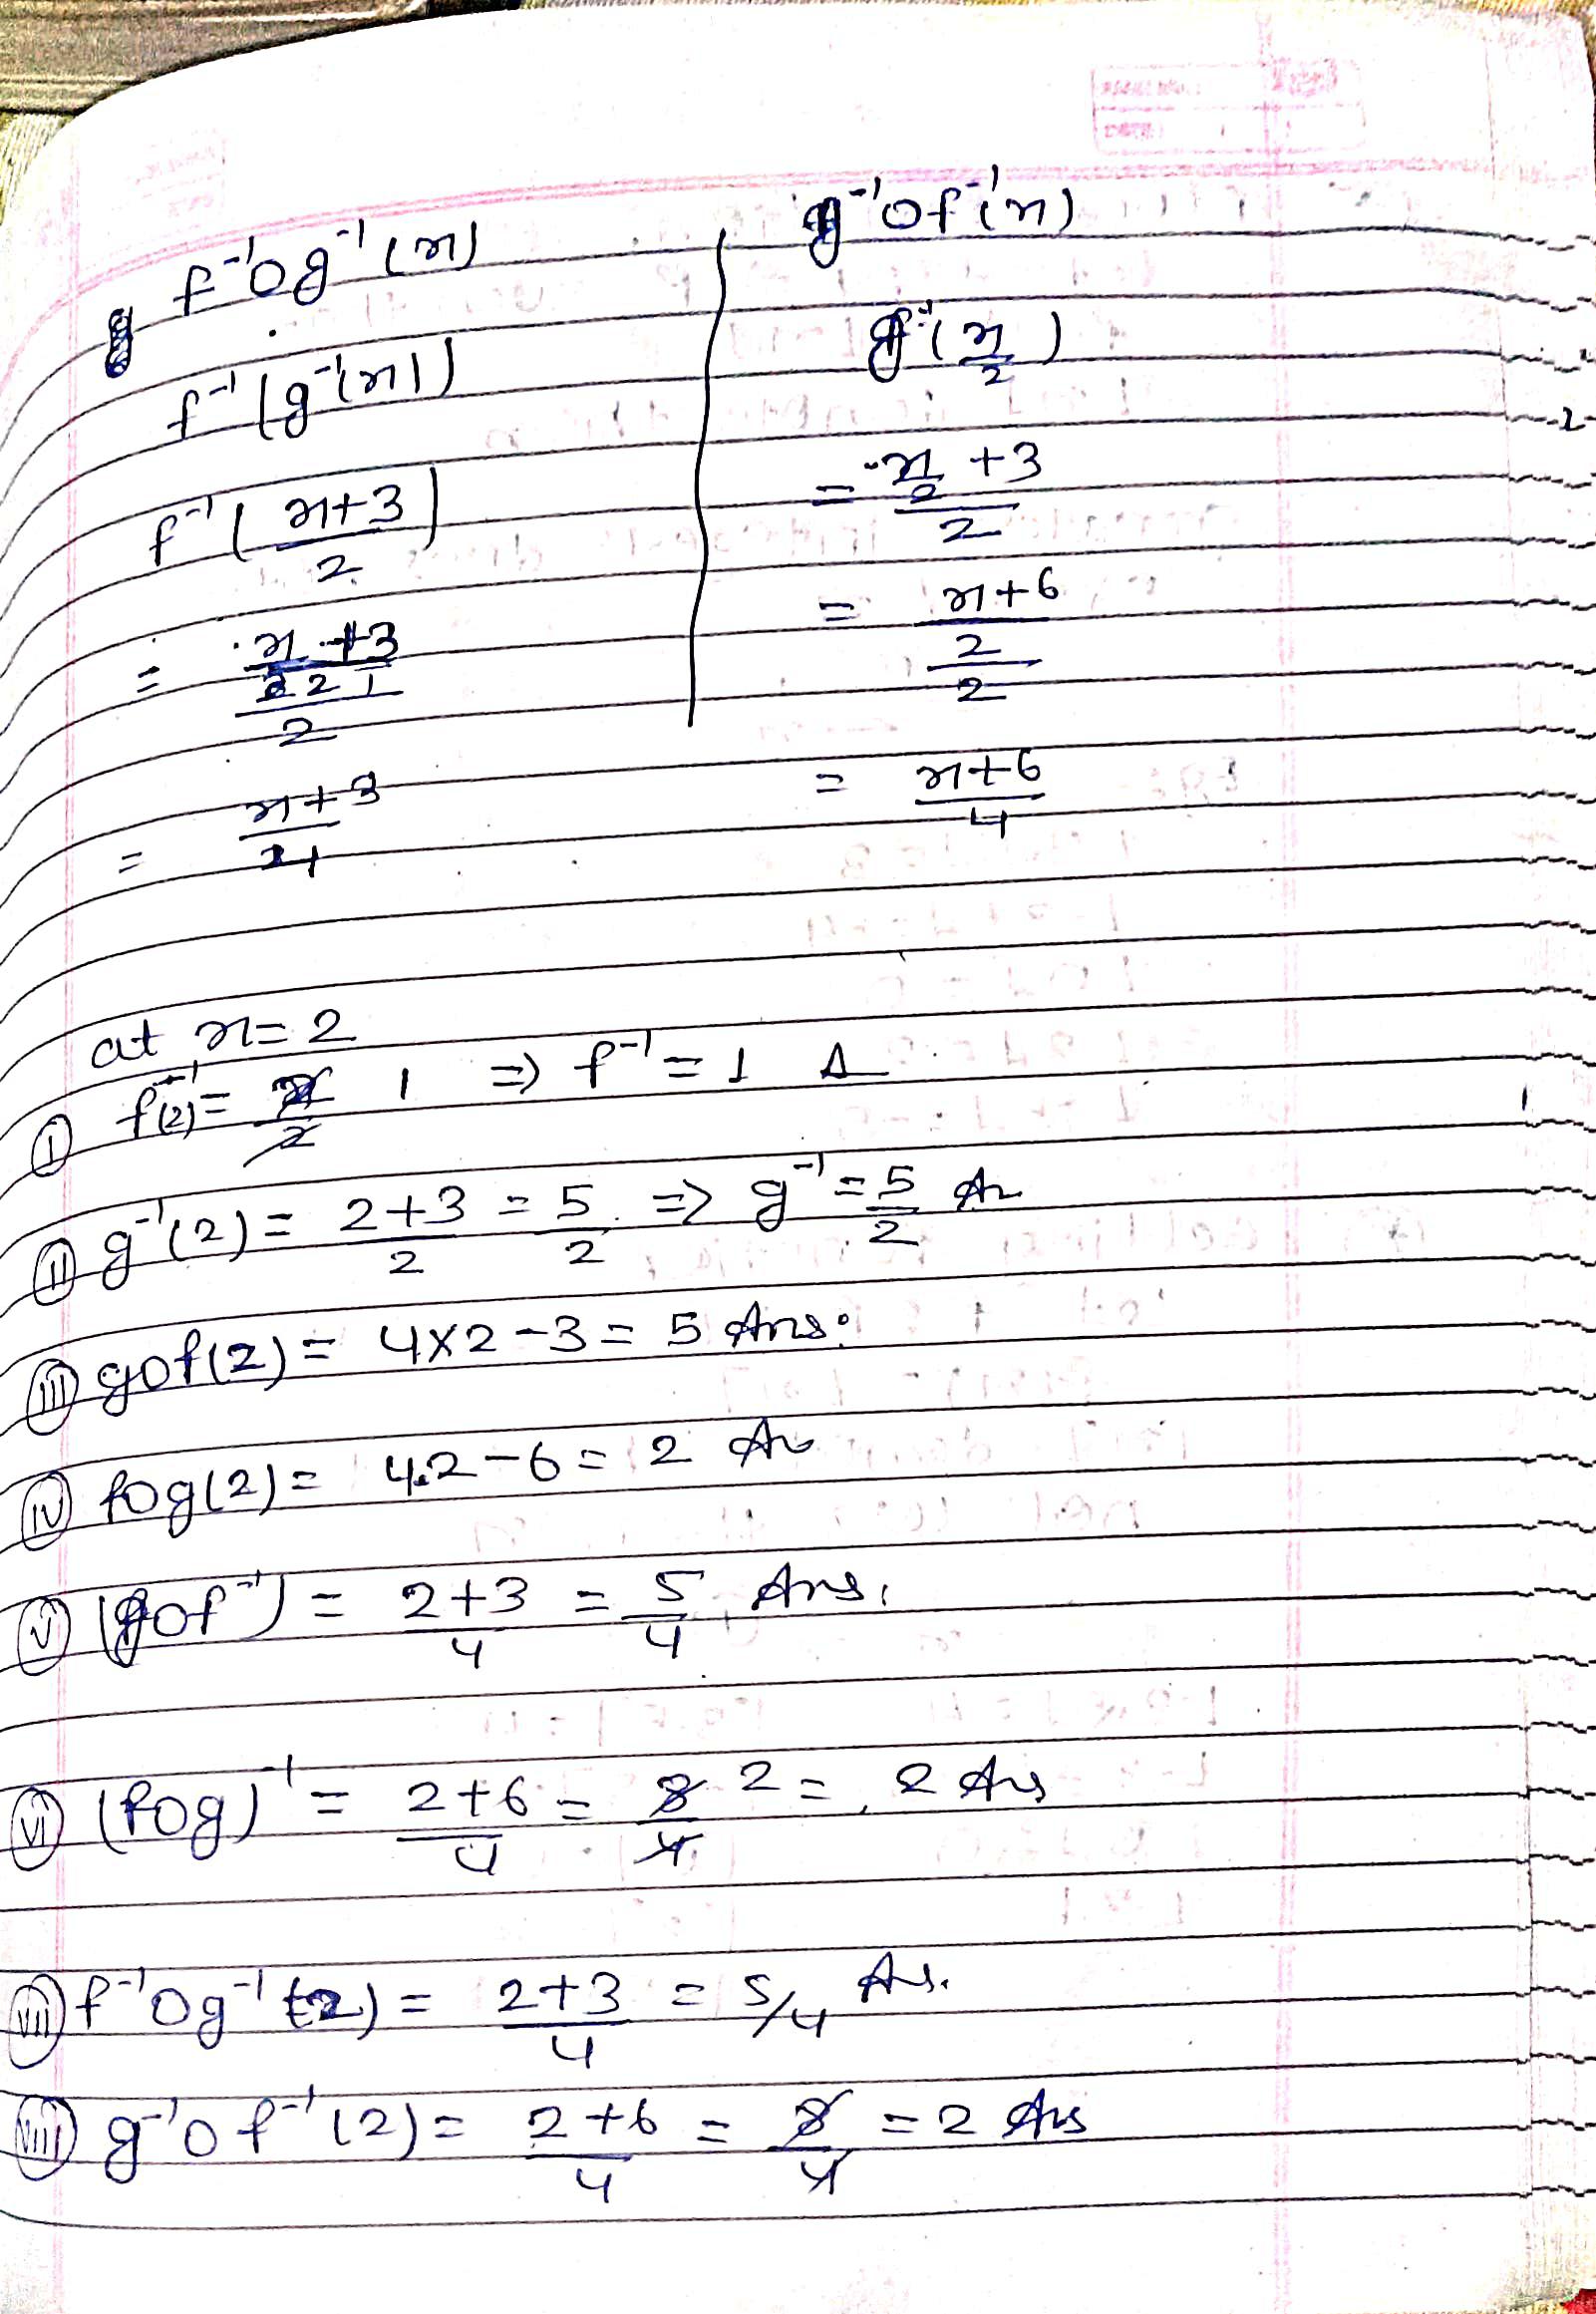 f⁻¹og⁻¹(x)
f⁻¹(g⁻¹(x))
f⁻¹((x+3)/2)
= (x+3)/2 1 / 2
= (x+3)/4
g⁻¹of⁻¹(x)
g⁻¹(x/2)
= (x/2 +3)/2
= ((x+6)/2)/2
= (x+6)/4
at x=2
(I) f⁻¹(2) = 2/2 1 ⇒ f⁻¹ = 1 A
(II) g⁻¹(2) = (2+3)/2 = 5/2 ⇒ g⁻¹ = 5/2 An
(III) gof(2) = 4×2-3 = 5 Ans.
(IV) fog(2) = 4.2-6 = 2 An
(V) (gof⁻¹) = (2+3)/4 = 5/4 Ans.
(VI) (fog)⁻¹ = (2+6)/4 = 8/4 2 = 2 Ans
(VII) f⁻¹og⁻¹(2) = (2+3)/4 = 5/4 As.
(VIII) g⁻¹of⁻¹(2) = (2+6)/4 = 8/4 = 2 Ans